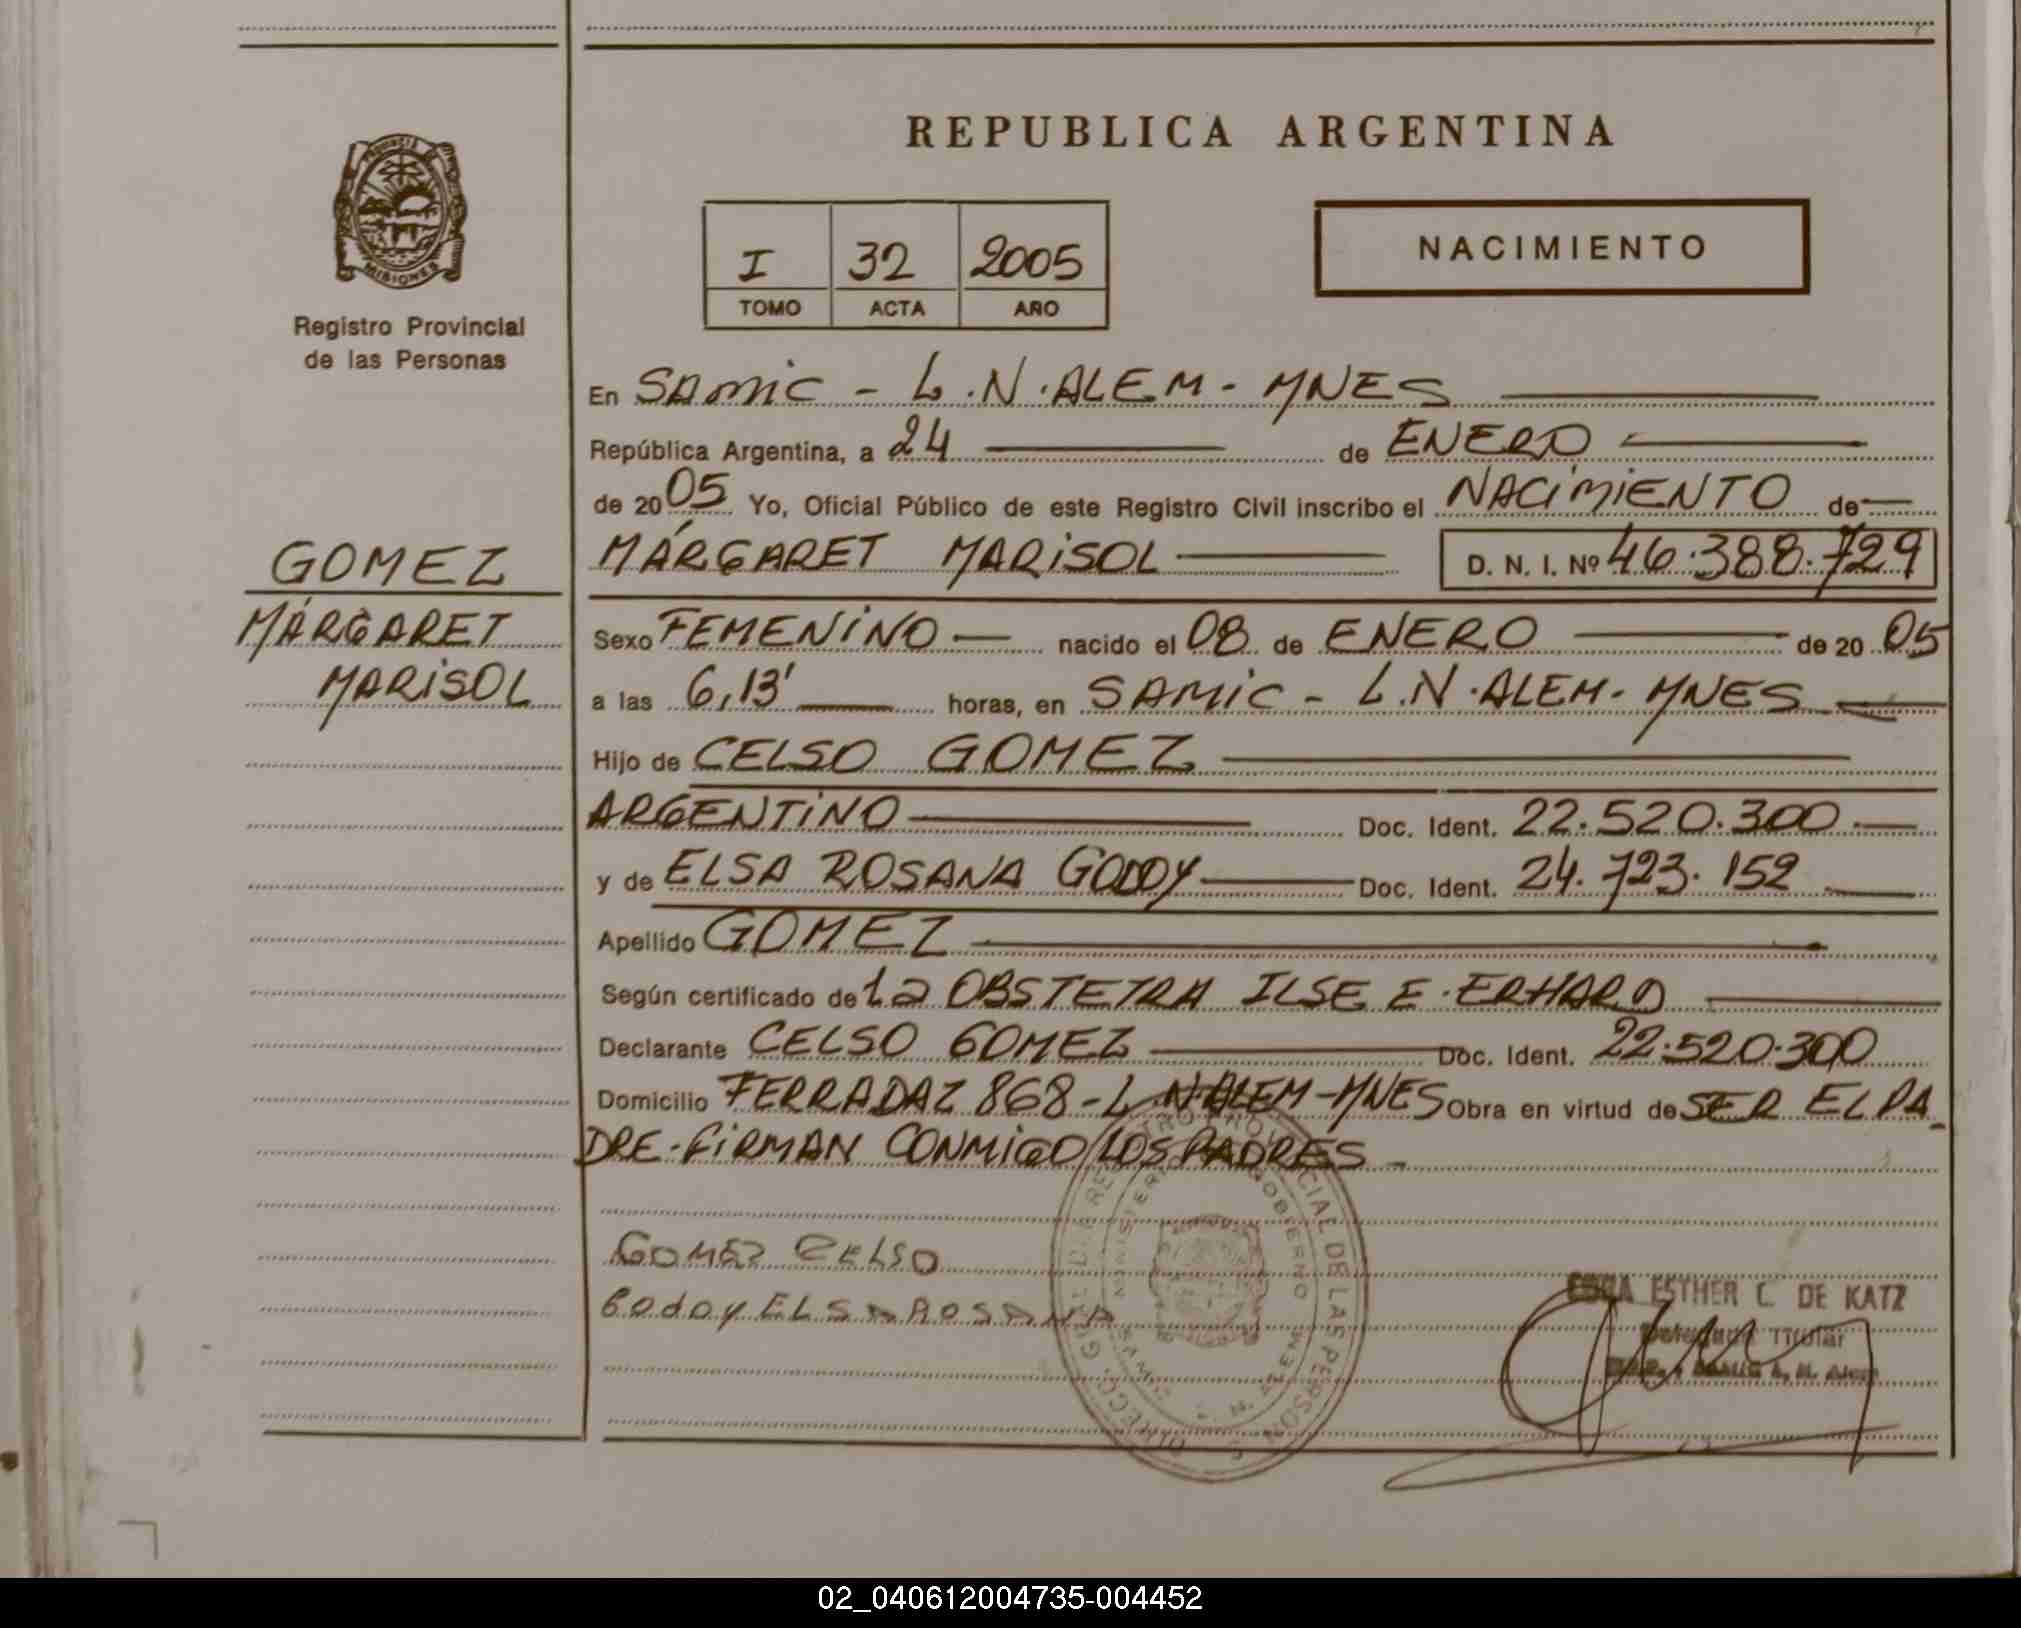 REPUBLICA ARGENTINA
PROVINCIA DE
MISIONES
Registro Provincial
de las Personas
I 32 2005
TOMO ACTA AÑO
NACIMIENTO
En SAMIC - L.N.ALEM - MNES
República Argentina, a 24 de ENERO
de 2005 Yo, Oficial Público de este Registro Civil inscribo el NACIMIENTO de
GOMEZ
MÁRGARET MARISOL
D. N. I. Nº 46.388.729
MÁRGARET
MARISOL
Sexo FEMENINO nacido el 08 de ENERO de 20 05
a las 6,13' horas, en SAMIC - L.N.ALEM - MNES
Hijo de CELSO GOMEZ
ARGENTINO Doc. Ident. 22.520.300
y de ELSA ROSANA GODOY Doc. Ident. 24.723.152
Apellido GOMEZ
Según certificado de la OBSTETRA ILSE E. ERHARD
Declarante CELSO GOMEZ Doc. Ident. 22.520.300
Domicilio FERRADAZ 868 - L.N.ALEM - MNES Obra en virtud de SER EL PA
DRE - FIRMAN CONMIGO LOS PADRES -
GOMEZ CELSO
Godoy ELSA ROSANA
ESTHER C. DE KATZ
Titular
L. N. Alem
REGISTRO PROVINCIAL DE LAS PERSONAS
MINISTERIO GOBIERNO
SAMIC L. N. ALEM
02_040612004735-004452